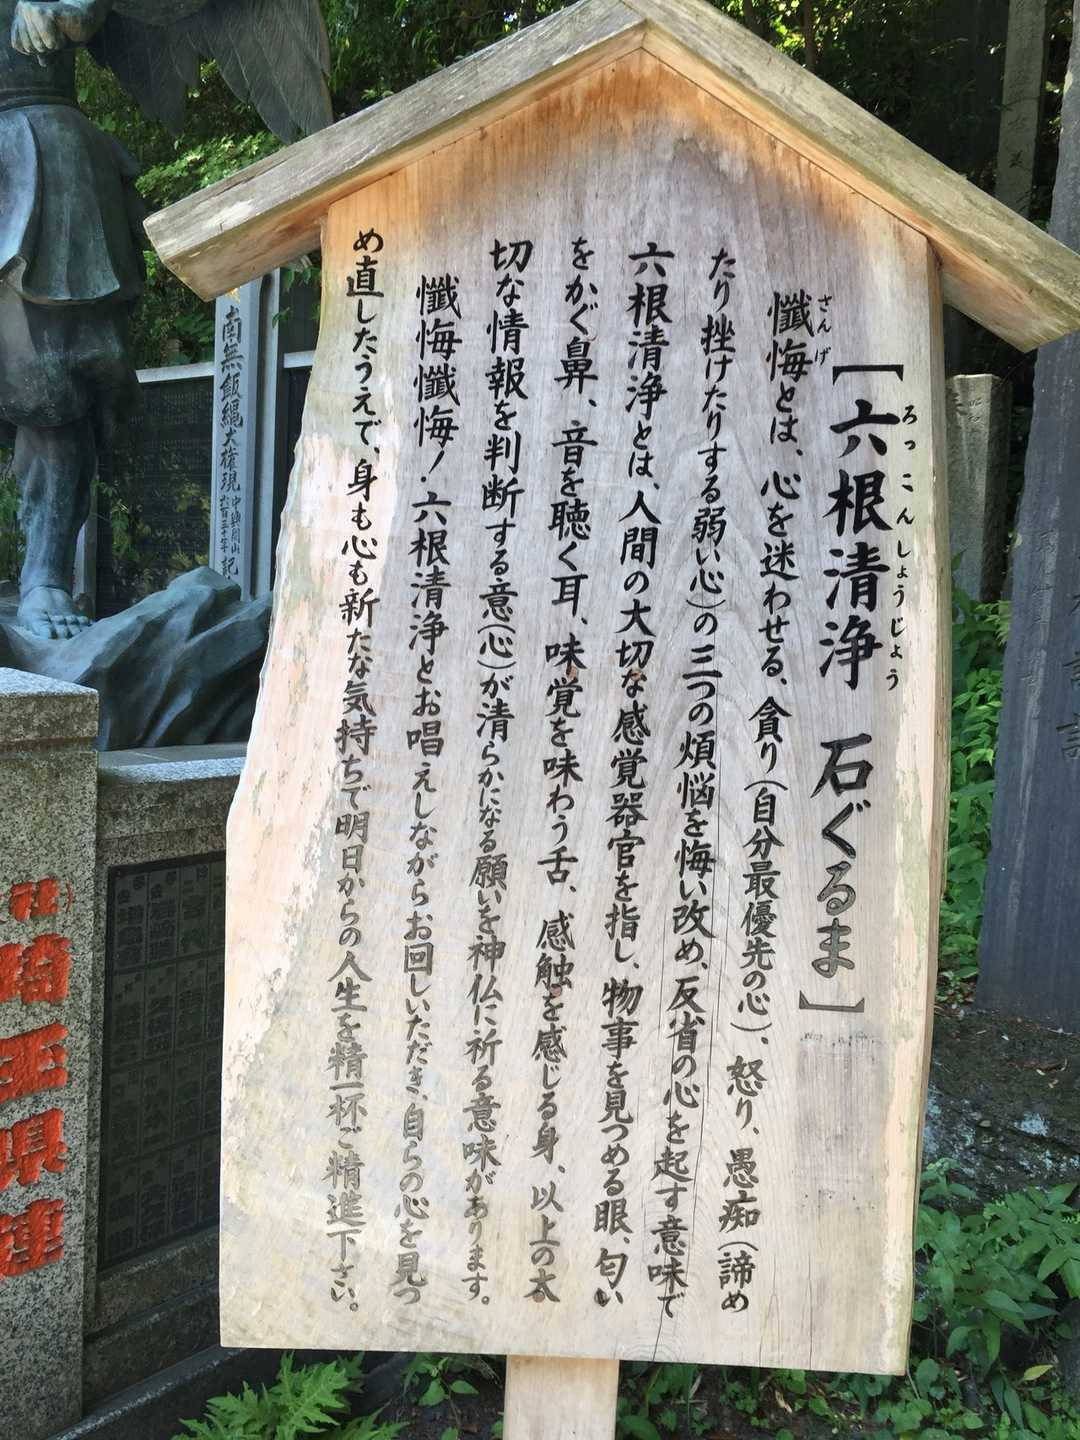 【六根清浄 石ぐるま】
ろっこんしょうじょう
さんげ
懺悔とは、心を迷わせる、貪り(自分最優先の心)、怒り、愚痴(諦め
たり挫けたりする弱い心)の三つの煩悩を悔い改め、反省の心を起す意味で
六根清浄とは、人間の大切な感覚器官を指し、物事を見つめる眼、匂い
をかぐ鼻、音を聴く耳、味覚を味わう舌、感触を感じる身、以上の大
切な情報を判断する意(心)が清らかになる願いを神仏に祈る意味があります。
懺悔懺悔!六根清浄とお唱えしながらお回しいただき、自らの心を見つ
め直したうえで、身も心も新たな気持ちで明日からの人生を精一杯ご精進下さい。
南無飯縄大権現
中興開山
六百三十年
記
埼玉県